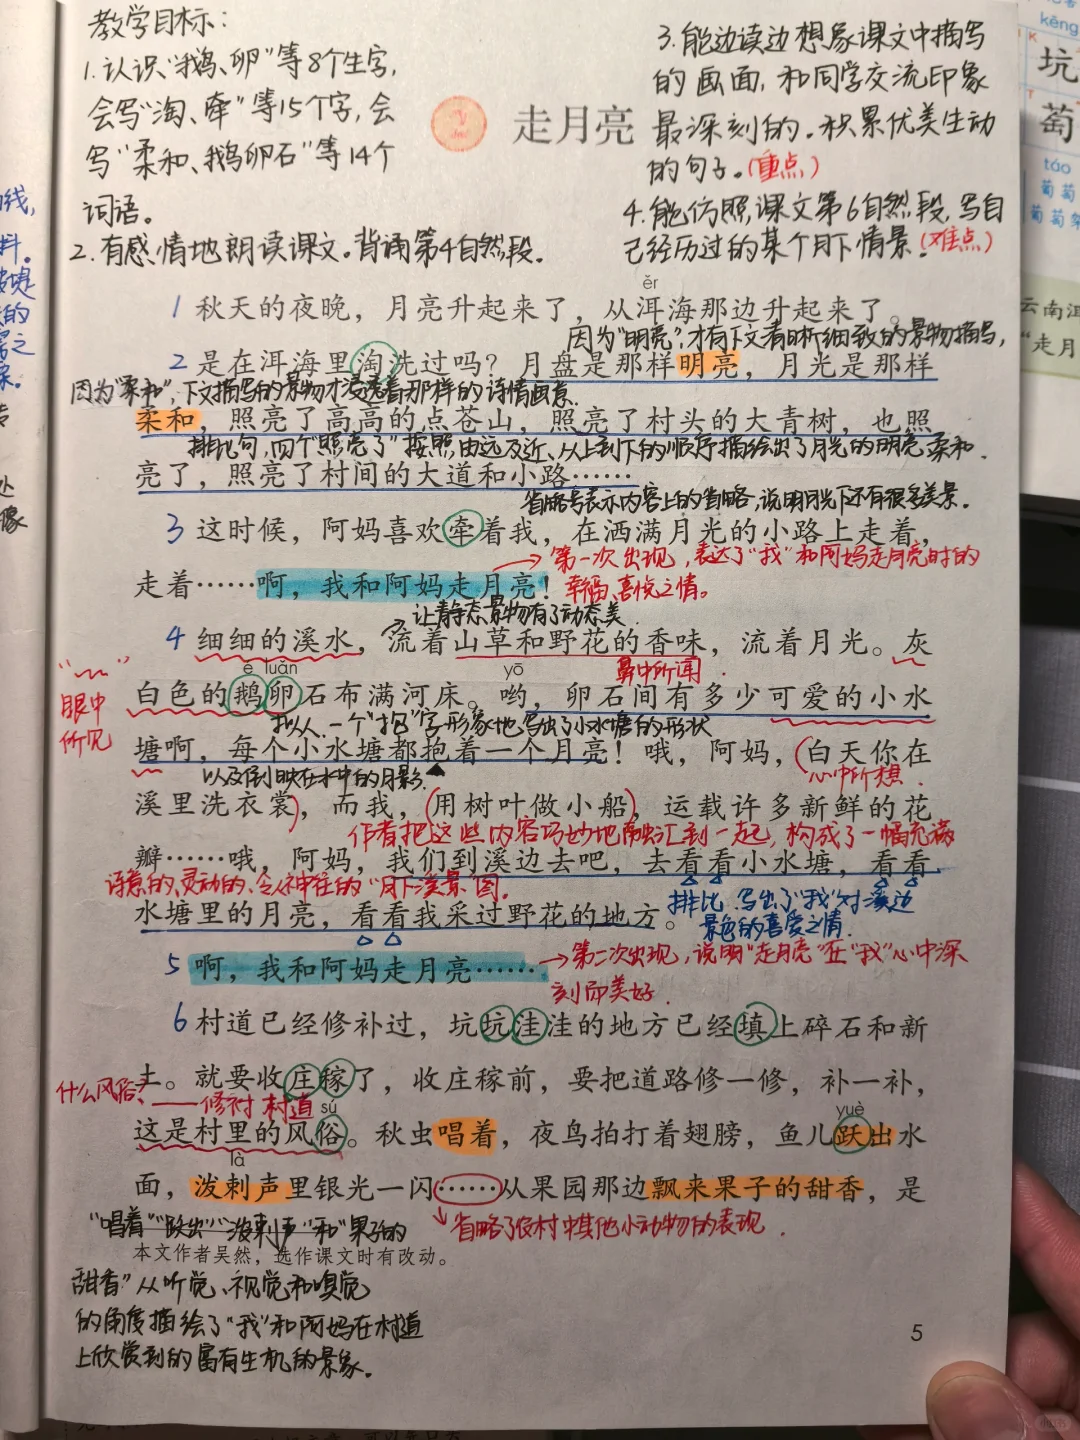 教学目标：
1.认识“鹅、卵”等8个生字，
会写“淘、牵”等15个字，会
写“柔和、鹅卵石”等14个
词语。
2.有感情地朗读课文。背诵第4自然段。
3.能边读边想象课文中描写
的画面，和同学交流印象
最深刻的。积累优美生动
的句子。(重点)
4.能仿照课文第6自然段，写自
己经历过的某个月下情景。(难点)
2
走月亮
ěr
1 秋天的夜晚，月亮升起来了，从洱海那边升起来了。
因为“明亮”，才有下文看的晰细致的景物描写，
2 是在洱海里淘洗过吗？月盘是那样明亮，月光是那样
因为“柔和”，下文描写的景物才浸透着那样的诗情画意
柔和，照亮了高高的点苍山，照亮了村头的大青树，也照
排比句，四个“照亮了”按照由远及近、从上到下的顺序描绘出了月光的明亮柔和．
亮了，照亮了村间的大道和小路……
省略号表示内容上的省略，说明月光下还有很多美景。
3 这时候，阿妈喜欢牵着我，在洒满月光的小路上走着，
→第一次出现，表达了“我”和阿妈走月亮时的
走着……啊，我和阿妈走月亮！
幸福、喜悦之情。
让静态景物有了动态美．
4 细细的溪水，流着山草和野花的香味，流着月光。灰
é luǎn yō
鼻中所闻
白色的鹅卵石布满河床。哟，卵石间有多少可爱的小水
眼中
所见
拟人．一个“抱”字形象地写出了小水塘的形状
塘啊，每个小水塘都抱着一个月亮！哦，阿妈，(白天你在
以及倒映在水中的月影．
心中所想．
溪里洗衣裳)，而我，(用树叶做小船)，运载许多新鲜的花
作者把这些内容巧妙地融汇到一起，构成了一幅充满
瓣……哦，阿妈，我们到溪边去吧，去看看小水塘，看看
诗意的、灵动的、令人神往的“月下溪景图．
水塘里的月亮，看看我采过野花的地方。
排比．写出了“我”对溪边
景色的喜爱之情．
5 啊，我和阿妈走月亮……
→第二次出现，说明“走月亮”在“我”心中深
刻而美好．
6 村道已经修补过，坑坑洼洼的地方已经填上碎石和新
土。就要收庄稼了，收庄稼前，要把道路修一修，补一补，
什么风俗？——修补村道
sú yuè
这是村里的风俗。秋虫唱着，夜鸟拍打着翅膀，鱼儿跃出水
là
面，泼剌声里银光一闪……从果园那边飘来果子的甜香，是
省略了夜村中其他小动物的表现．
“唱着”“跃出”“泼剌声”和“果子的
本文作者吴然，选作课文时有改动。
甜香”从听觉、视觉和嗅觉
的角度描绘了“我”和阿妈在村道
上欣赏到的富有生机的景象。
5
kēng
坑
萄
táo
葡萄
葡萄架
云南洱
“走月